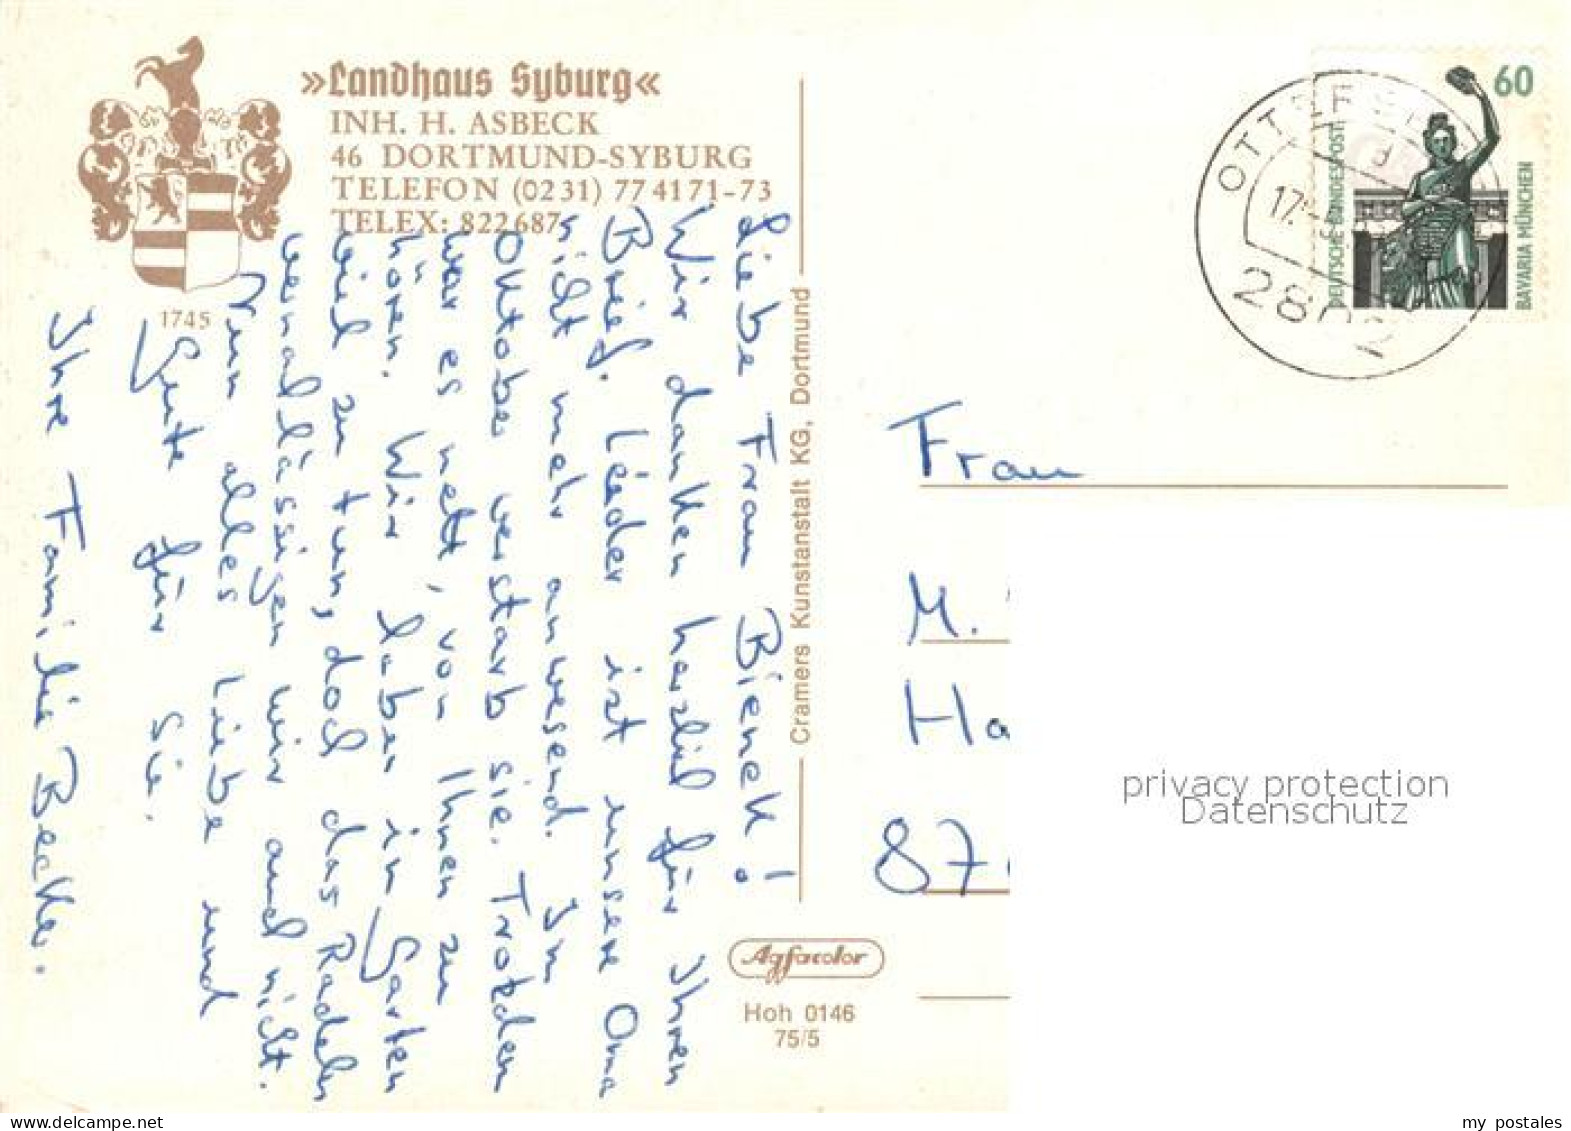 »Landhaus Syburg«
INH. H. ASBECK
46 DORTMUND-SYBURG
TELEFON (0231) 77 41 71-73
TELEX: 822687
1745
Liebe Frau Bieneck!
Wir danken herzlich für Ihren
Brief. Leider ist unsere Oma
nicht mehr anwesend. Im
Oktober verstarb sie. Trotzdem
war es nett, von Ihnen zu
hören. Wir haben im Garten
viel zu tun, doch das Radeln
vernallässigen wir auch nicht.
Nun alles Liebe und
Gute für Sie.
Ihre Familie Becker.
Cramers Kunstanstalt KG, Dortmund
Agfacolor
Hoh 0146
75/5
60
DEUTSCHE BUNDESPOST
BAVARIA MÜNCHEN
17.
2802
Frau
M.
Ha
87
privacy protection
Datenschutz
my postales